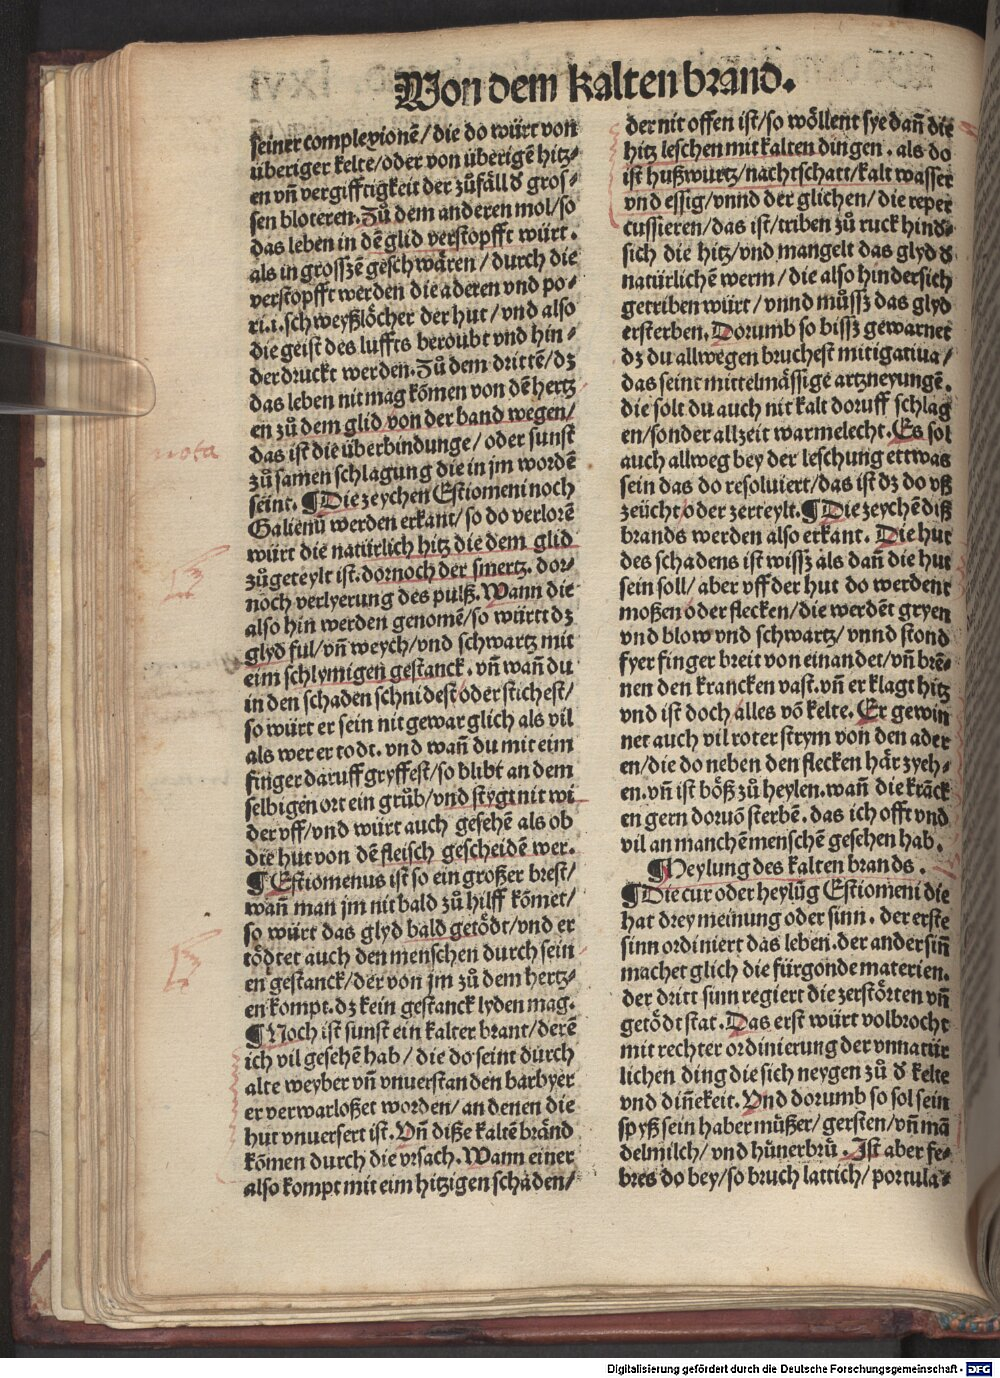 Von dem kalten brand.
seiner complexionē/ die do würt von
überiger kelte/oder von überigē hitz⸗
en vñ vergifftigkeit der zůfäll ð gros⸗
sen bloteren. Zů dem anderen mol/so
das leben in dē glid verstopfft würt.
als in grosszē geschwären / durch die
verstopfft werden die aderen vnd po⸗
ri.i.schweyßlöcher der hut / vnd also
die geist des luffts beroubt vnd hin⸗
derdruckt werden. Zů dem drittē/dz
das leben nit mag kōmen von dē hertz
en zů dem glid von der band wegen/
das ist die überbindunge/ oder sunst
zůsamen schlagung die in jm wordē
seint. ¶Die zeychen Estiomeni noch
Galienū werden erkant/ so do verlorē
würt die natürlich hitz die dem glid
zůgeteylt ist. dornoch der smertz. dor⸗
noch verlyerung des pulß. Wann die
also hin werden genomē/so württ dz
glyd ful/vñ weych/vnd schwartz mit
eim schlymigen gestanck. vñ wañ du
in den schaden schnidest oder stichest/
so würt er sein nit gewar glich als vil
als wer er todt. vnd wañ du mit eim
finger daruff gryffest/so blibt an dem
selbigen ort ein grůb/vnd stygt nit wi
der vff/vnd würt auch gesehē als ob
die hut von dē fleisch gescheidē wer.
¶Estiomenus ist so ein großer brest/
wañ man jm nit bald zů hilff kōmet/
so würt das glyd bald getödt/vnd er
tödtet auch den menschen durch sein
en gestanck/der von jm zů dem hertz⸗
en kompt. dz kein gestanck lyden mag.
¶Noch ist sunst ein kalter brant/derē
ich vil gesehē hab/ die do seint durch
alte weyber vñ vnuerstanden barbyer
er verwarloßet worden/ an denen die
hut vnuersert ist. Vñ diße kaltē bränd
kōmen durch die vrsach. Wann einer
also kompt mit eim hitzigen schaden/
nota
der nit offen ist/so wöllent sye dañ die
hitz leschen mit kalten dingen. als do
ist hußwurtz/nachtschatt/kalt wasser
vnd essig/vnnd der glichen/ die reper
cussieren/das ist/triben zů ruck hind⸗
sich die hitz/vnd mangelt das glyd ð
natürlichē werm/ die also hindersich
getriben würt/ vnnd můssz das glyd
ersterben. Dorumb so bissz gewarnet
dz du allwegen bruchest mitigatiua/
das seint mittelmässige artzneyungē.
die solt du auch nit kalt doruff schlag
en/sonder allzeit warmelecht. Es sol
auch allweg bey der leschung ettwas
sein das do resoluiert/das ist dz do vß
zeücht/oder zerteylt. ¶Die zeychē diß
brands werden also erkant. Die hut
des schadens ist wissz als dañ die hut
sein soll/ aber vff der hut do werdent
moßen oder flecken/die werdēt gryen
vnd blow vnd schwartz/ vnnd stond
fyer finger breit von einander/vñ brē⸗
nen den krancken vast. vñ er klagt hitz
vnd ist doch alles vō kelte. Er gewin
net auch vil roter strym von den ader
en/die do neben den flecken här zyeh⸗
en. vñ ist böß zů heylen. wañ die krāck
en gern doruō sterbē. das ich offt vnd
vil an manchē menschē gesehen hab.
¶Heylung des kalten brands.
¶Die cur oder heylūg Estiomeni die
hat drey meinung oder sinn. der erste
sinn ordiniert das leben. der ander siñ
machet glich die fürgonde materien.
der dritt sinn regiert die zerstörten vñ
getödt stat. Das erst würt volbrocht
mit rechter ordinierung der vnnatür
lichen ding die sich neygen zů ð kelte
vnd diñekeit. Vnd dorumb so sol sein
spyß sein habermůßer/gersten/vñ mā
delmilch/ vnd hünerbrů. Ist aber fe⸗
bres do bey/so bruch lattich/ portula⸗
Digitalisierung gefördert durch die Deutsche Forschungsgemeinschaft - DFG